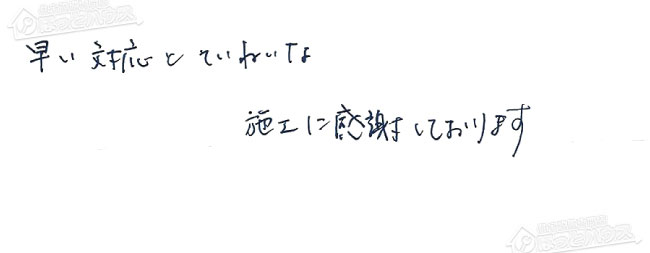 早い対応とていねいな
施工に感謝しております